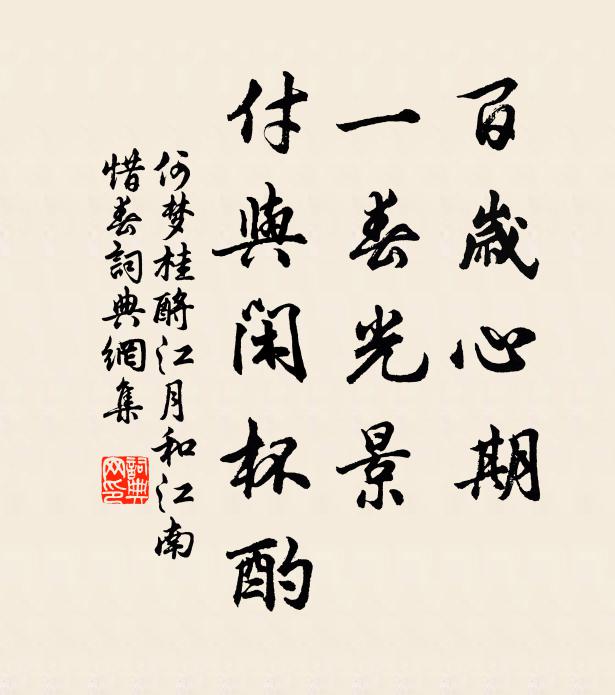 百歲心期
一春光景
付與閑杯酌
何梦桂酹江月和江南
惜春詞典網集
詞典網印